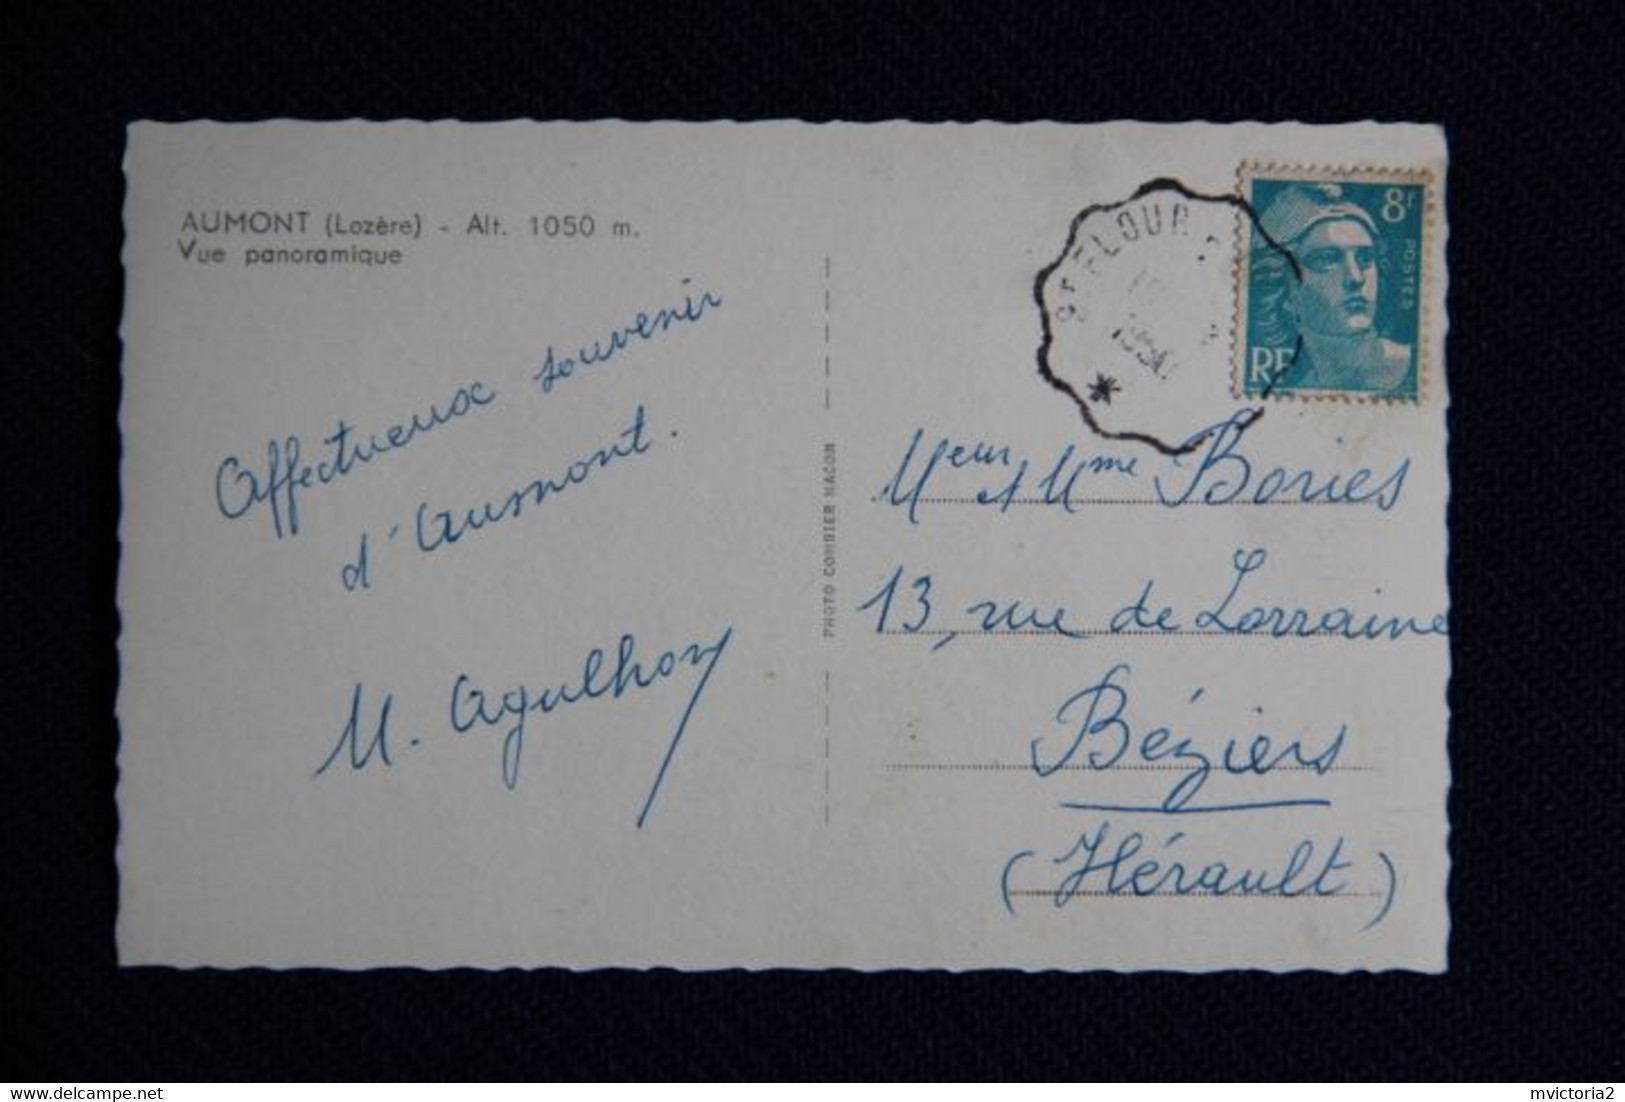 AUMONT (Lozère) - Alt. 1050 m.
Vue panoramique
Affectueux souvenir
d'Aumont.
M. Agulhon
PHOTO COMBIER MACON
ST FLOUR
1950
8F
POSTES
RF
Meur et Mme Bories
13, rue de Lorraine
Béziers
(Hérault)
mvictoria2